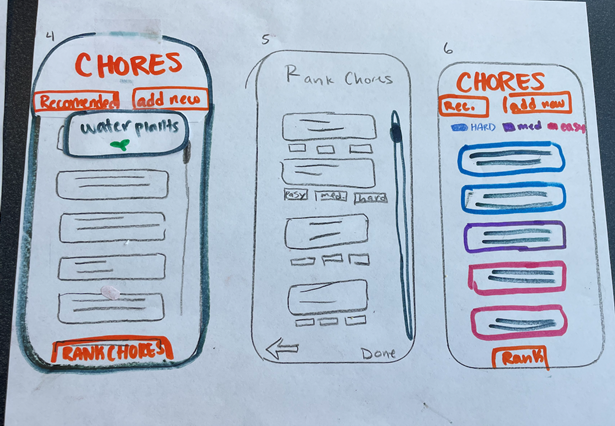 4
CHORES
Recomended
add new
water plants
RANK CHORES
5
Rank Chores
easy
med.
hard
Done
6
CHORES
Rec.
add new
HARD
med
easy
Rank